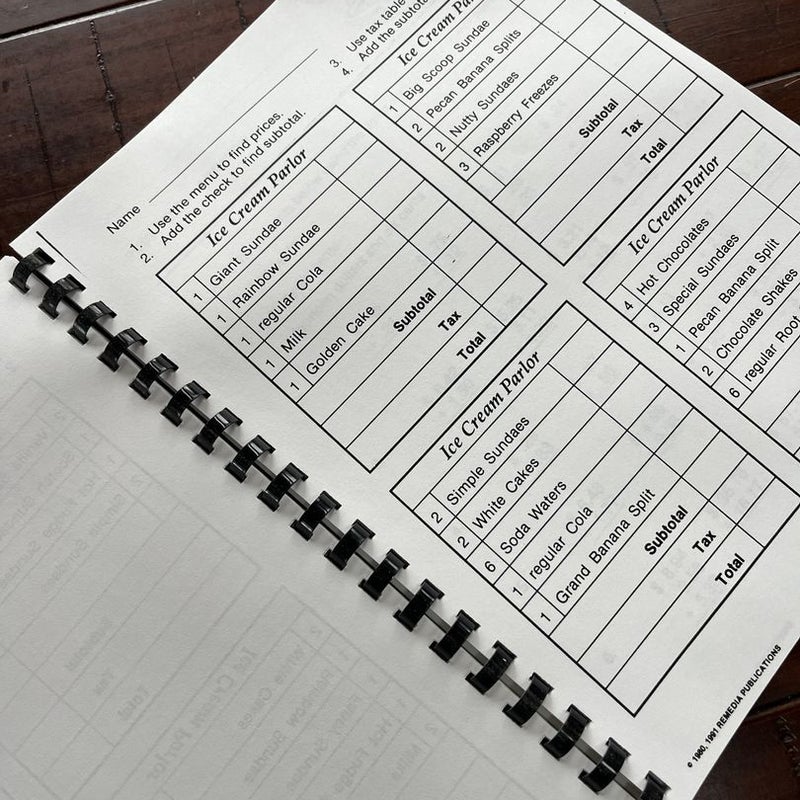 Name
1. Use the menu to find prices.
2. Add the check to find subtotal.
3. Use tax table
4. Add the subtota
Ice Cream Parlor
1 Giant Sundae
1 Rainbow Sundae
1 regular Cola
1 Milk
1 Golden Cake
Subtotal
Tax
Total
Ice Cream Pa
1 Big Scoop Sundae
2 Pecan Banana Splits
2 Nutty Sundaes
3 Raspberry Freezes
Subtotal
Tax
Total
Ice Cream Parlor
2 Simple Sundaes
2 White Cakes
6 Soda Waters
1 regular Cola
1 Grand Banana Split
Subtotal
Tax
Total
Ice Cream Parlor
4 Hot Chocolates
3 Special Sundaes
1 Pecan Banana Split
2 Chocolate Shakes
6 regular Root
© 1980, 1991 REMEDIA PUBLICATIONS